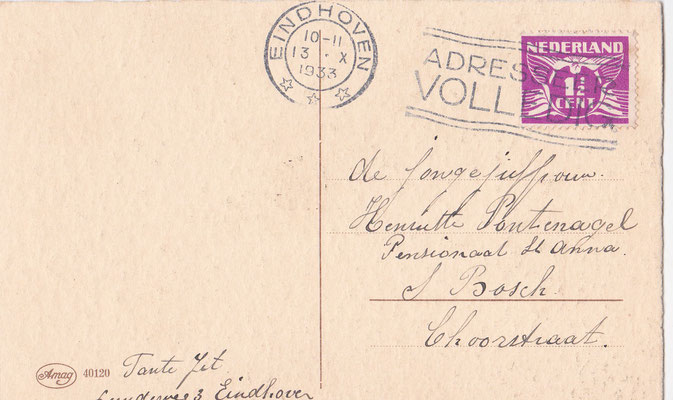 EINDHOVEN
10-11
13 X
1933
ADRESSEER
VOLLEDIG
NEDERLAND
1½
CENT
de jongejuffrouw.
Henriette Pontenagel
Pensionaat St Anna.
S Bosch.
Choorstraat.
Amag 40120
Tante Jet
Eindhoven